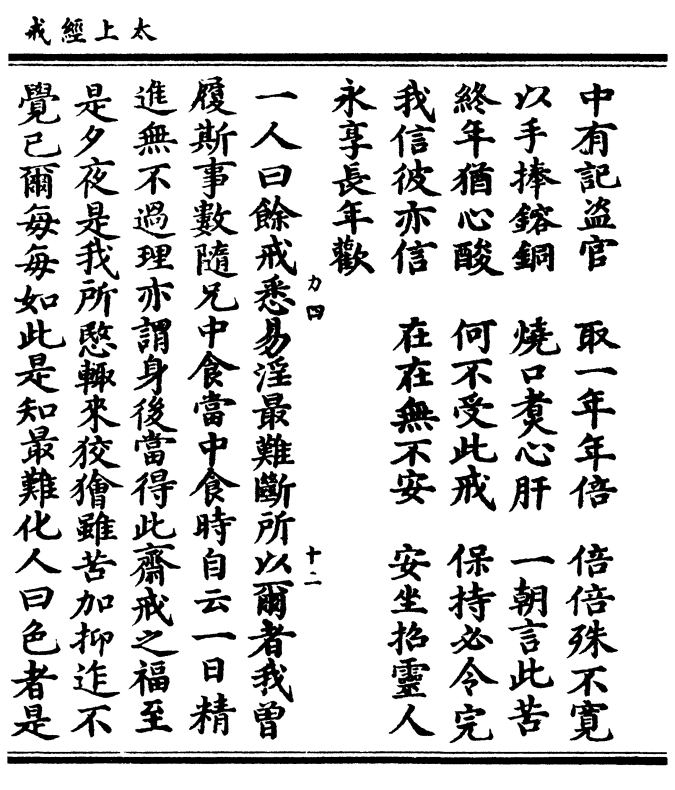 太上經戒
中有記盗官　取一年年倍　倍倍殊不寛
以手捧鎔銅　燒口煑心肝　一朝言此苦
終年猶心酸　何不受此戒　保持必令完
我信彼亦信　在在無不安　安坐招靈人
永享長年歡
力四　十二
一人曰餘戒悉易淫最難斷所以爾者我曾
履斯事數隨兄中食當中食時自云一日精
進無不過理亦謂身後當得此齋戒之福至
是夕夜是我所愍輙來狡獪雖苦加抑迮不
覺已爾每每如此是知最難化人曰色者是